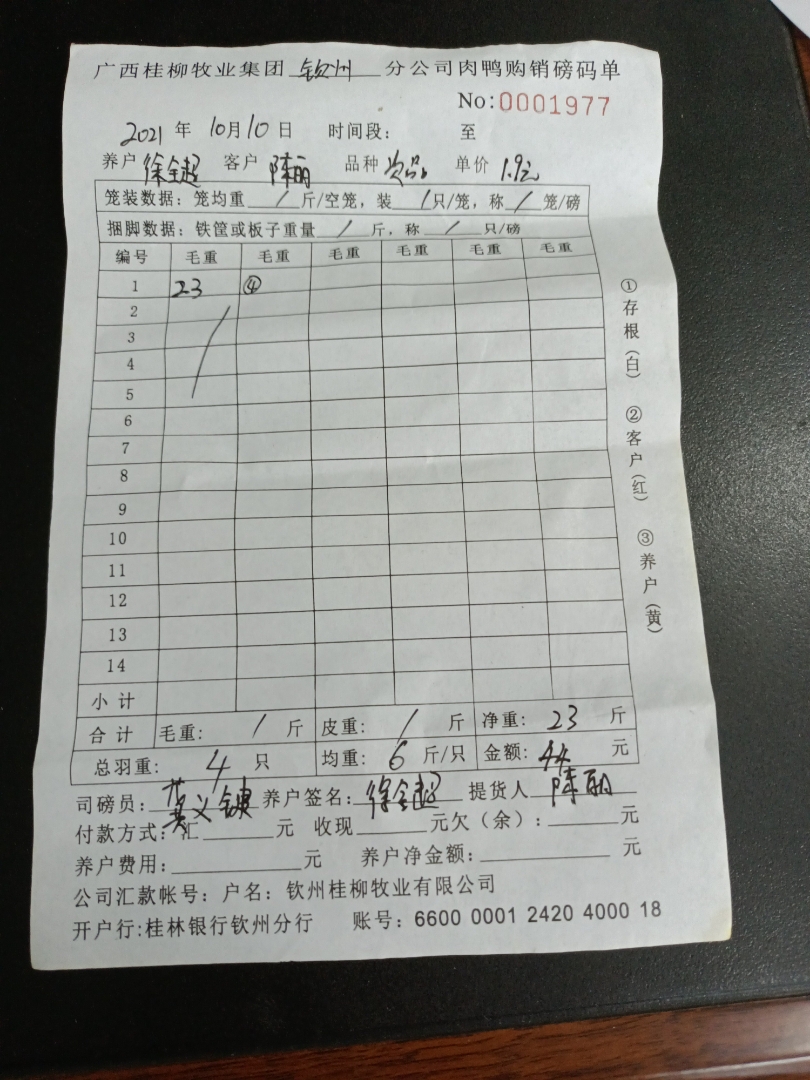 广西桂柳牧业集团 钦州 分公司肉鸭购销磅码单
No:0001977
2021 年 10月10日 时间段: 至
养户 徐全超 客户 陈丽 品种 次品 单价 1.9元
笼装数据: 笼均重 / 斤/空笼, 装 / 只/笼, 称 / 笼/磅
捆脚数据: 铁筐或板子重量 / 斤, 称 / 只/磅
编号 毛重 毛重 毛重 毛重 毛重 毛重
1 23 ④
2
3
4
5
6
7
8
9
10
11
12
13
14
小计
合计 毛重: / 斤 皮重: / 斤 净重: 23 斤
总羽重: 4 只 均重: 6 斤/只 金额: 44 元
司磅员: 黄义键 养户签名: 徐全超 提货人 陈丽
付款方式: 汇 元 收现 元欠(余): 元
养户费用: 元 养户净金额: 元
公司汇款帐号: 户名: 钦州桂柳牧业有限公司
开户行:桂林银行钦州分行 账号: 6600 0001 2420 4000 18
①存根(白) ②客户(红) ③养户(黄)